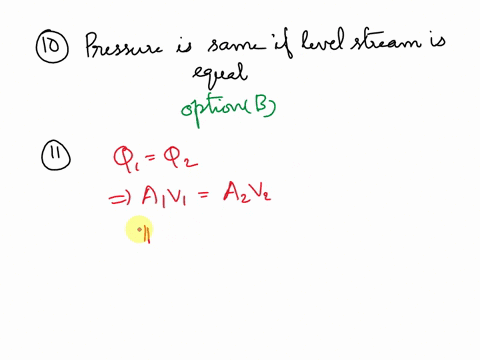 10 Pressure is same if level stream is
equal
option(B)
11 Q₁ = Q₂
⇒ A₁V₁ = A₂V₂